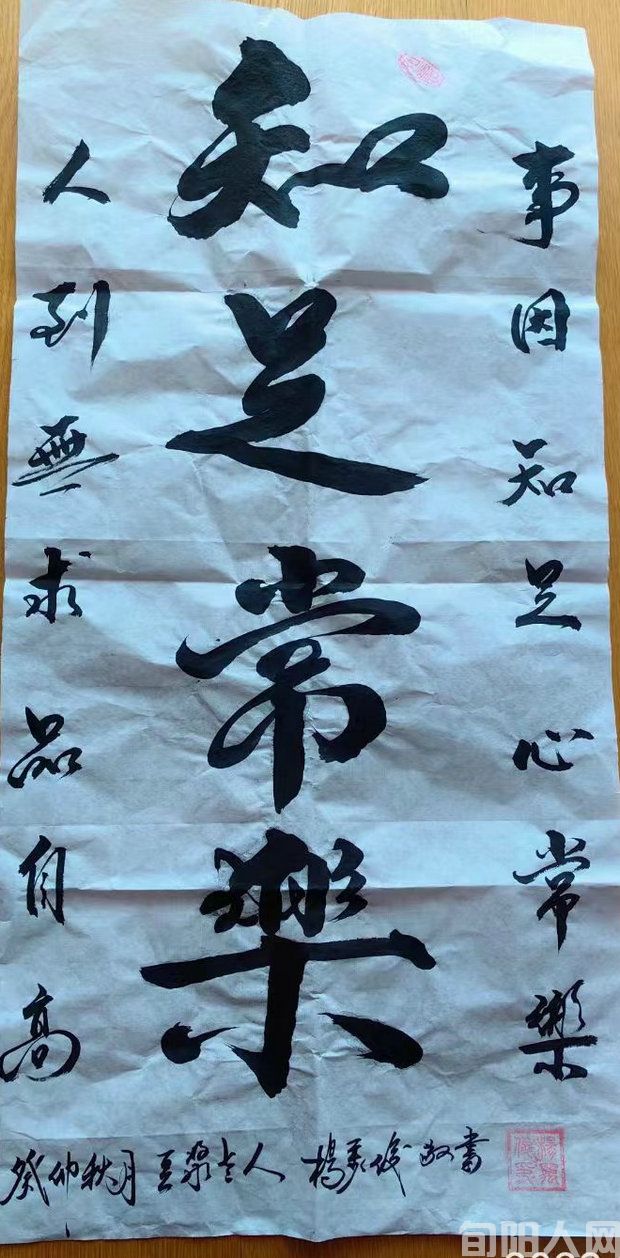 事因知足心常樂
知足常樂
人到無求品自高
仲秋月
人
楊 敬書
旬阳人网